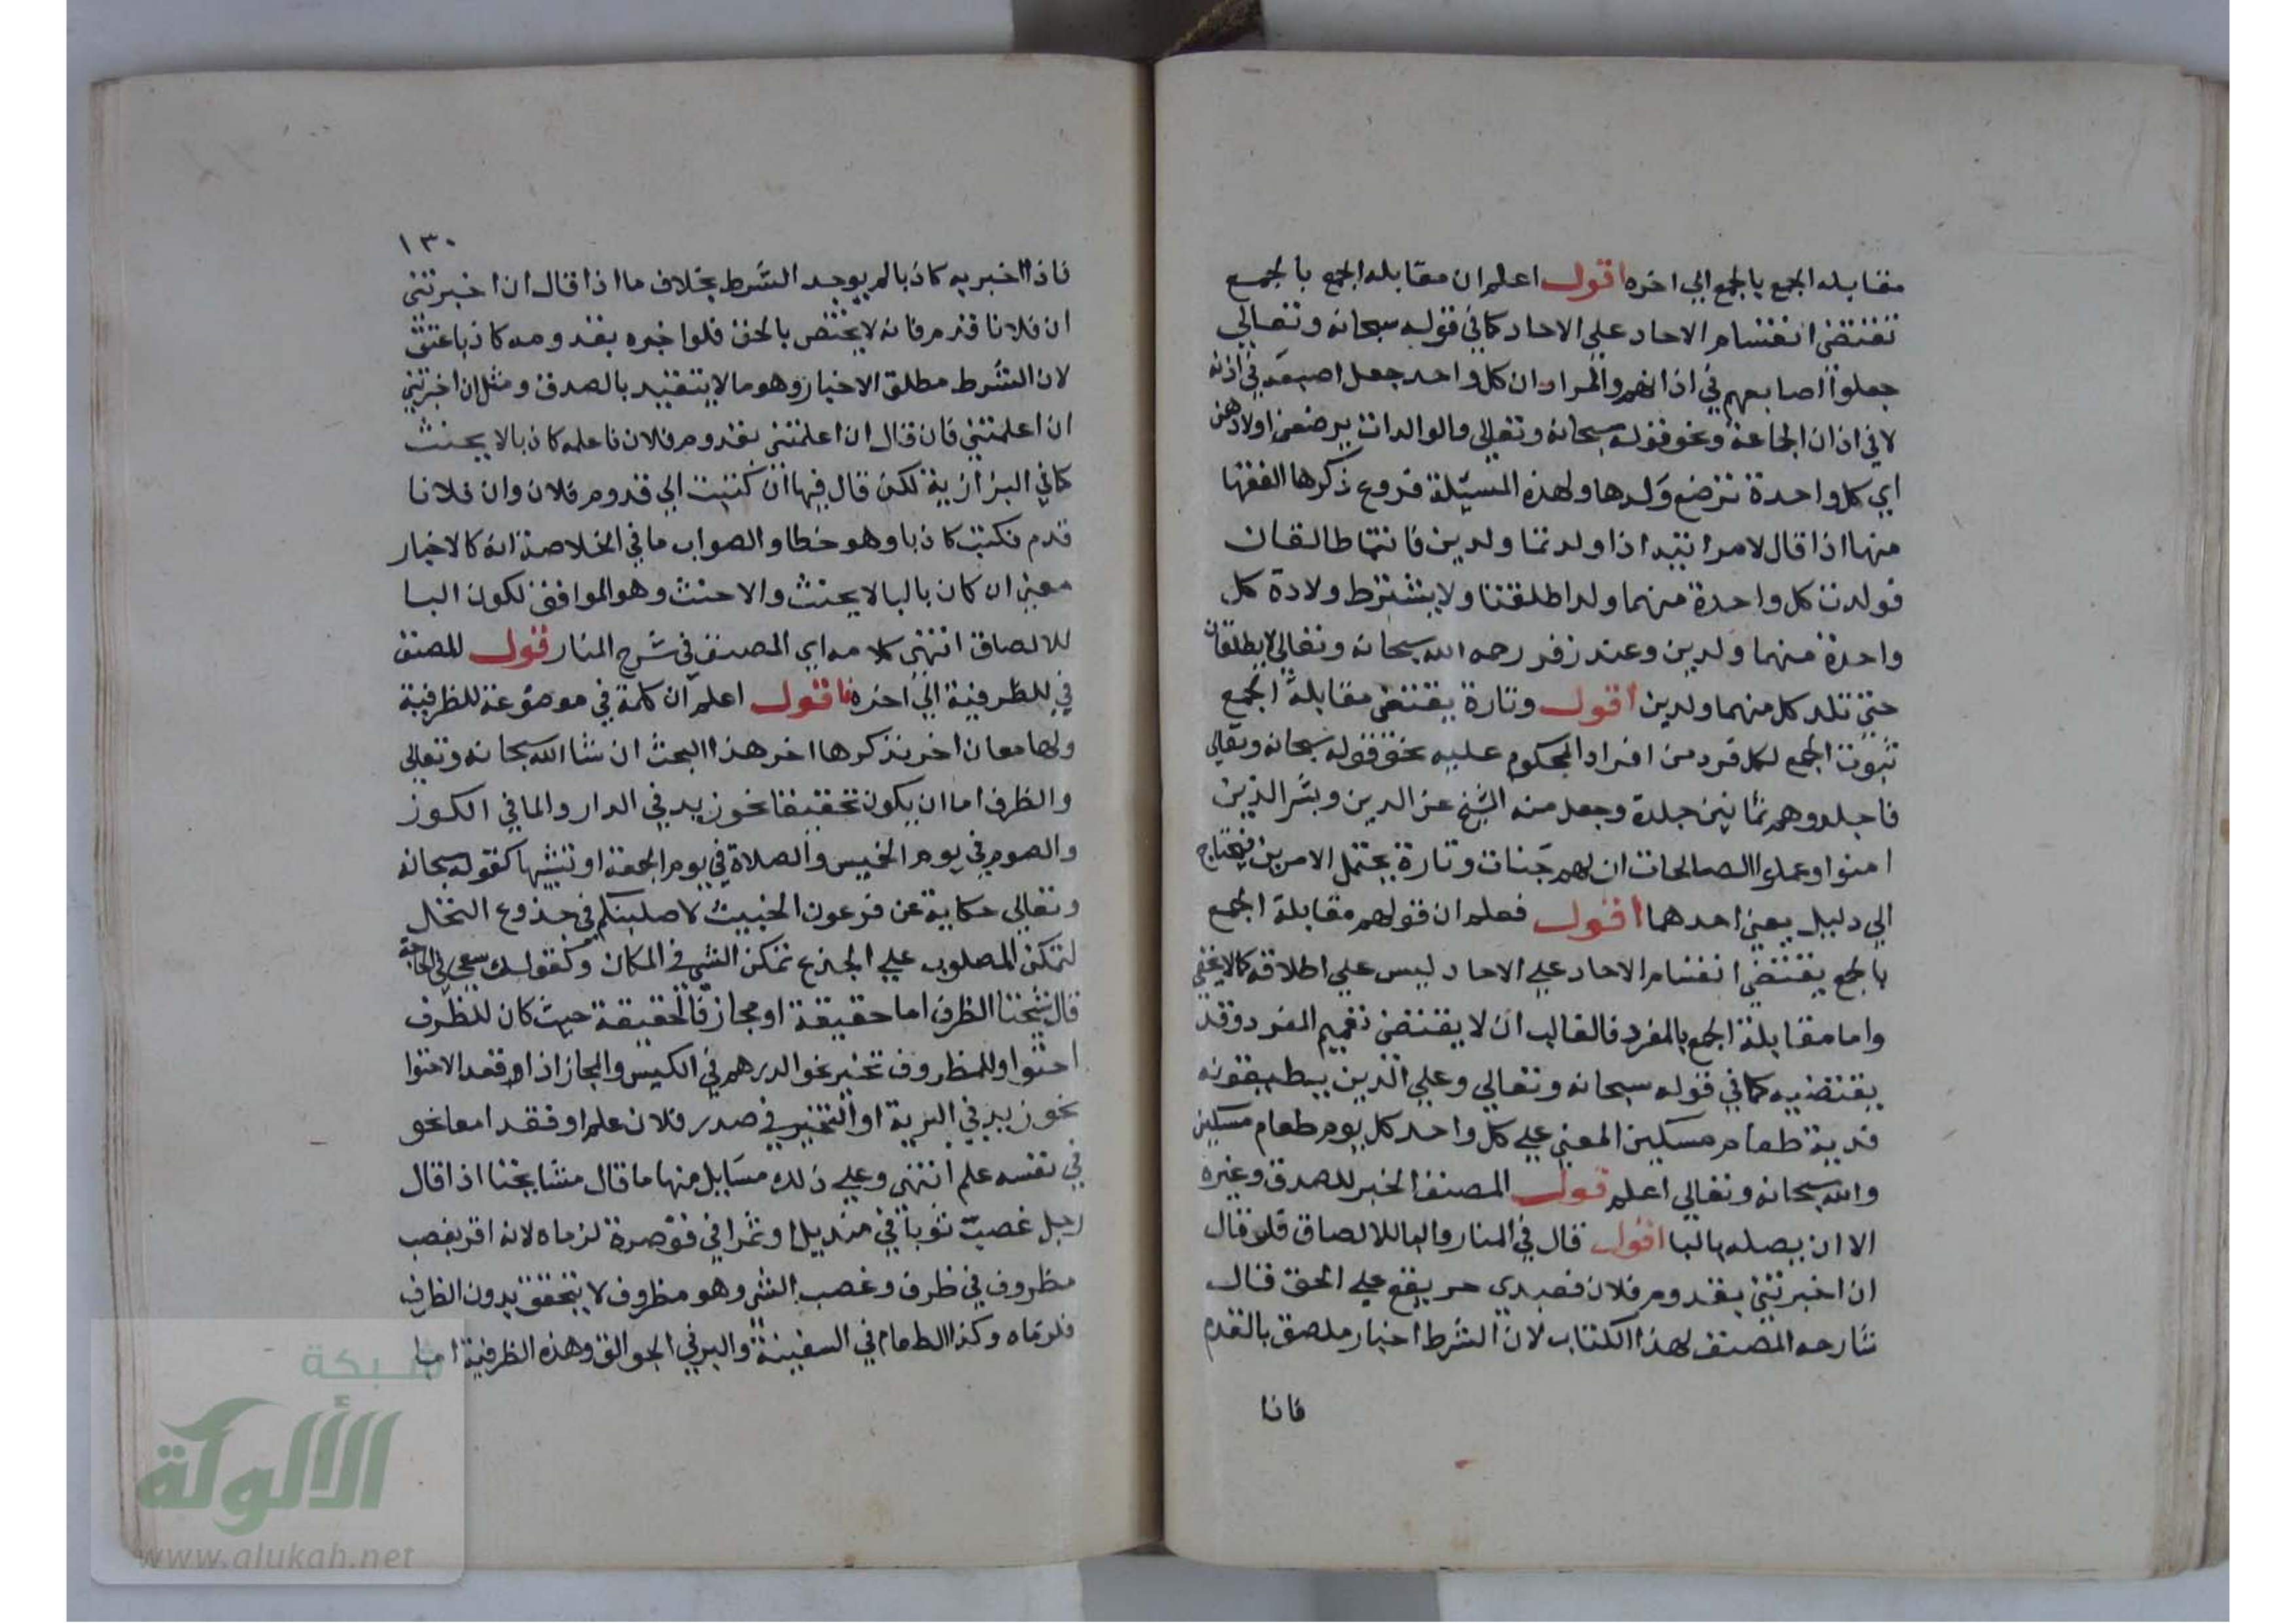 مقابله الجمع بالجمع الي اخره اقول اعلم ان مقابله الجمع بالجمع
تقتضي انقسام الاحاد علي الاحاد كما في قوله سبحانه وتعالي
جعلوا اصابعهم في اذانهم والمراد ان كل واحد جعل اصبعه في اذنه
لا في اذان الجماعة ونحو قوله سبحانه وتعالي والوالدات يرضعن اولادهن
اي كل واحدة ترضع ولدها ولهذه المسيلة فروع ذكرها الفقها
منها اذا قال لامراتيه اذا ولدتما ولدين فانتما طالقان
فولدت كل واحدة منهما ولدا طلقتا ولا يشترط ولادة كل
واحدة منهما ولدين وعند زفر رحمه الله سبحانه وتعالي لا يطلقان
حتي تلد كل منهما ولدين اقول وتارة يقتضي مقابلة الجمع
ثبوت الجمع لكل فرد من افراد المحكوم عليه نحو قوله سبحانه وتعالي
فاجلدوهم ثمانين جلدة وجعل منه الشيخ عز الدين وبشر الذين
امنوا وعملوا الصالحات ان لهم جنات وتارة يحتمل الامرين فيحتاج
الي دليل يعين احدهما اقول فعلم ان قولهم مقابلة الجمع
بالجمع يقتضي انقسام الاحاد علي الاحاد ليس علي اطلاقه كما لا يخفي
واما مقابلة الجمع بالمفرد فالغالب ان لا يقتضي تعميم المفرد وقد
يقتضيه كما في قوله سبحانه وتعالي وعلي الذين يطيقونه
فدية طعام مسكين المعني علي كل واحد كل يوم طعام مسكين
والله سبحانه وتعالي اعلم قول المصنف الخبر للصدق وغيره
الا ان يصله بالبا اقول قال في المنار والبا للالصاق فلو قال
ان اخبرتني بقدوم فلان فعبدي حر يقع علي الحق قال
شارحه المصنف لهذا الكتاب لان الشرط اخبار ملصق بالقدم
فاذا
١٣٠
فاذا اخبر به كاذبا لم يوجد الشرط بخلاف ما اذا قال ان اخبرتني
ان فلانا قدم فانه لا يختص بالحق فلو اخبره بقدومه كاذبا عتق
لان الشرط مطلق الاخبار وهو ما لا يتقيد بالصدق ومثل ان اخبرتني
ان اعلمتني فان قال ان اعلمتني بقدوم فلان فاعلمه كاذبا لا يحنث
كما في البزازية لكن قال فيها ان كتبت الي قدوم فلان وان فلانا
قدم فكتب كاذبا وهو خطا والصواب ما في الخلاصة انه كالاخبار
معني ان كان بالبا لا يحنث والا حنث وهو الموافق لكون البا
للالصاق انتهي كلامه اي المصنف في شرح المنار قول للمصنف
في للظرفية الي اخره فاقول اعلم ان كلمة في موضوعة للظرفية
ولها معان اخر نذكرها اخر هذا البحث ان شا الله سبحانه وتعالي
والظرف اما ان يكون تحقيقا نحو زيد في الدار والما في الكوز
والصوم في يوم الخميس والصلاة في يوم الجمعة او تشبيها كقوله سبحانه
وتعالي حكاية عن فرعون الخبيث لاصلبنكم في جذوع النخل
لتمكن المصلوب علي الجذع تمكن الشي في المكان وكقولك سعي في الحاجة
قال شيخنا الظرف اما حقيقة او مجاز فالحقيقة حيث كان للظرف
احتوا وللمظروف تحيز نحو الدرهم في الكيس والمجاز اذا فقد الاحتوا
نحو زيد في البرية او التحيز في صدر فلان علم او فقدا معا نحو
في نفسه علم انتهي وعلي ذلك مسايل منها ما قال مشايخنا اذا قال
رجل غصبت ثوبا في منديل او تمرا في قوصرة لزماه لانه اقر بغصب
مظروف في ظرف وغصب الشي وهو مظروف لا يتحقق بدون الظرف
فلزماه وكذا الطعام في السفينة والبر في الجوالق وهذه الظرفية اما
شبكة
الألوكة
www.alukah.net